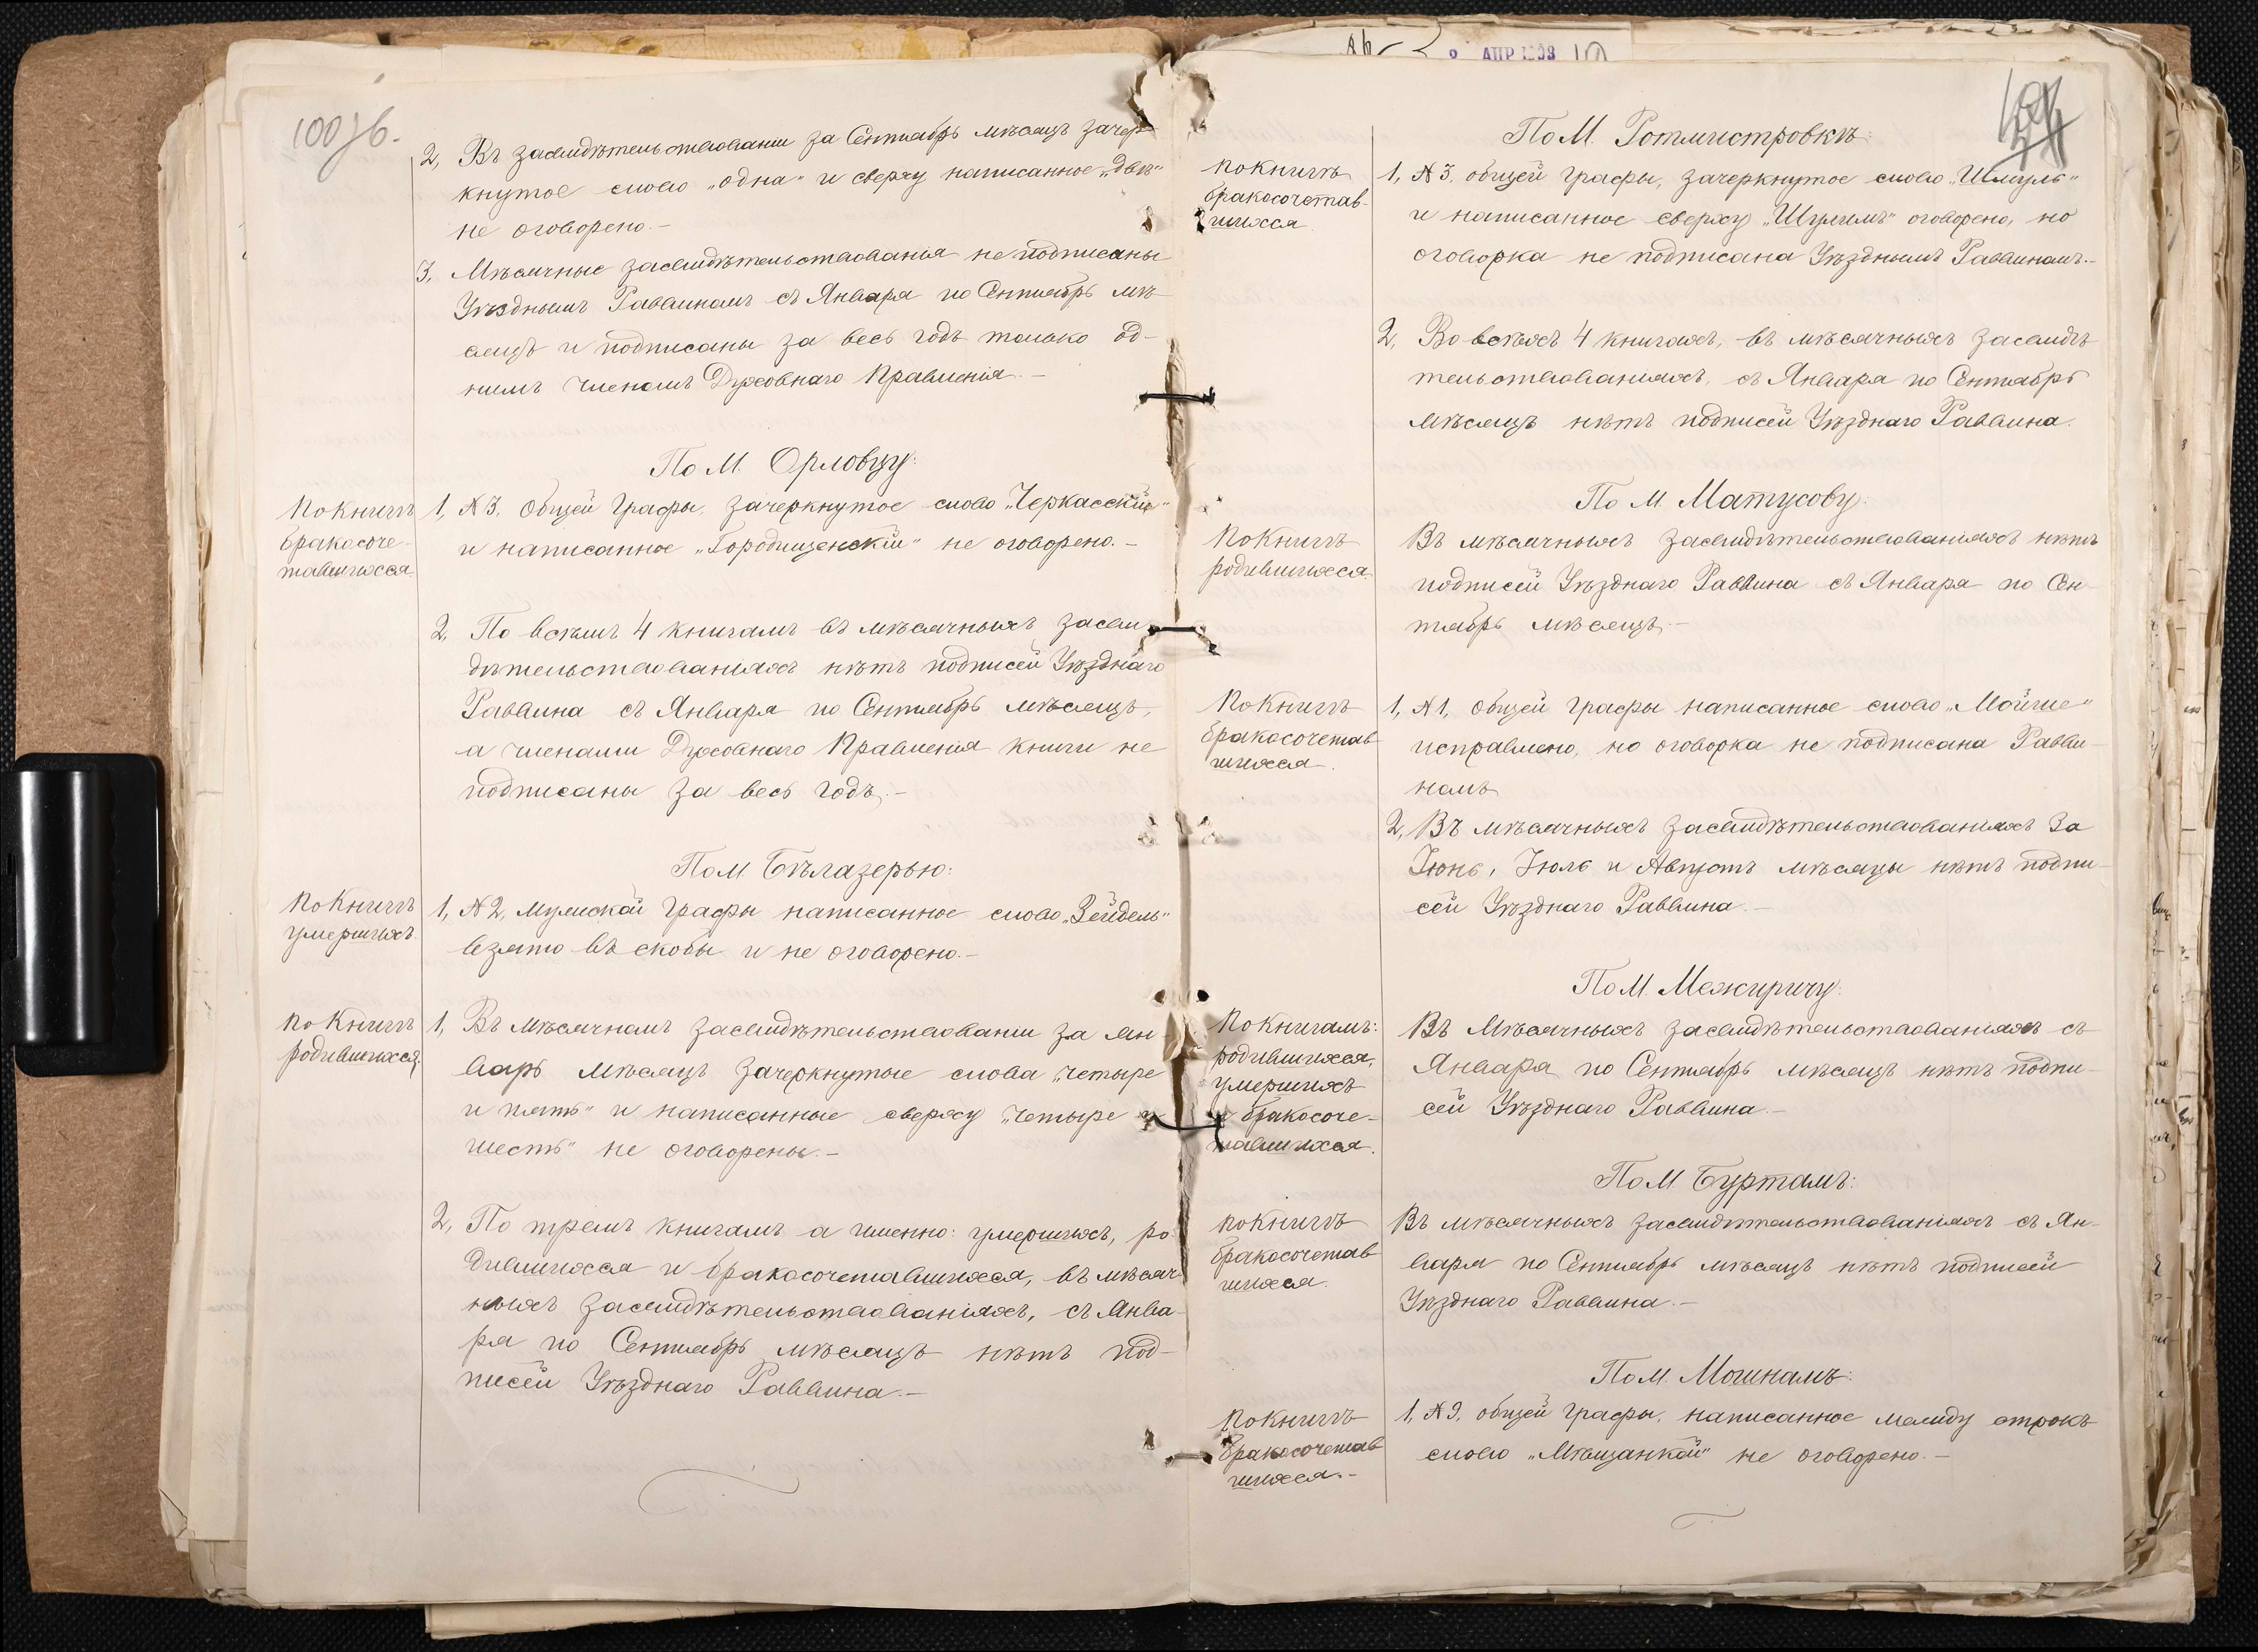 100 об.
2, Въ засвидѣтельствованіи за Сентябрь мѣсяцъ зачер-
кнутое слово „одна" и сверху написанное „двѣ"
не оговорено.-
3, Мѣсячные засвидѣтельствованія не подписаны
Уѣзднымъ Раввиномъ съ Января по Сентябрь мѣ-
сяцъ и подписаны за весь годъ только од-
нимъ членомъ Духовнаго Правленія.-
По М. Орловцу:
По книгѣ
бракосоче-
тавшихся.
1, № 3. Общей графы, зачеркнутое слово „Черкасскій"
и написанное „Городищенскій" не оговорено.-
2, По всѣмъ 4 книгамъ въ мѣсячныхъ засви-
дѣтельствованіяхъ нѣтъ подписей Уѣзднаго
Раввина съ Января по Сентябрь мѣсяцъ,
а членами Духовнаго Правленія книги не
подписаны за весь годъ.-
По М. Бѣлазерью:
По книгѣ
умершихъ.
1, № 2, Мужской графы написанное слово „Зейдель"
взято въ скобы и не оговорено.-
По книгѣ
родившихся
1, Въ мѣсячномъ засвидѣтельствованіи за Ян-
варь мѣсяцъ зачеркнутые слова „четыре
и пять" и написанные сверху „четыре и
шесть" не оговорены.-
2, По тремъ книгамъ а именно: умершихъ, ро-
дившихся и бракосочетавшихся, въ мѣсяч-
ныхъ засвидѣтельствованіяхъ, съ Янва-
ря по Сентябрь мѣсяцъ нѣтъ под-
писей Уѣзднаго Раввина.-
6 АПР 1903
По М. Ротмистровкѣ:
По книгѣ
бракосочетав-
шихся
1, № 3. общей графы, зачеркнутое слово „Шмуль"
и написанное сверху „Шулимъ" оговорено, но
оговорка не подписана Уѣзднымъ Раввиномъ.-
2, Во всѣхъ 4 книгахъ, въ мѣсячныхъ засвидѣ-
тельствованіяхъ, съ Января по Сентябрь
мѣсяцъ нѣтъ подписей Уѣзднаго Раввина.
По М. Матусову:
По книгѣ
родившихся.
Въ мѣсячныхъ засвидѣтельствованіяхъ нѣтъ
подписей Уѣзднаго Раввина съ Января по Сен-
тябрь мѣсяцъ.-
По книгѣ
бракосочетав-
шихся.
1, № 1, общей графы написанное слово „Мойше"
исправлено, но оговорка не подписана Равви-
номъ
2, Въ мѣсячныхъ засвидѣтельствованіяхъ за
Іюнь, Іюль и Августъ мѣсяцы нѣтъ подпи-
сей Уѣзднаго Раввина.-
По М. Межиричу:
По книгамъ:
родившихся,
умершихъ
и бракосоче-
тавшихся.
Въ Мѣсячныхъ засвидѣтельствованіяхъ съ
Января по Сентябрь мѣсяцъ нѣтъ подпи-
сей Уѣзднаго Раввина.-
По М. Буртамъ:
По книгѣ
бракосочетав-
шихся.
Въ мѣсячныхъ засвидѣтельствованіяхъ съ Ян-
варя по Сентябрь мѣсяцъ нѣтъ подписей
Уѣзднаго Раввина.-
По М. Мошнамъ:
По книгѣ
бракосочетав-
шихся.-
1, № 9, общей графы, написанное между строкъ
слово „Мѣщанкой" не оговорено.-